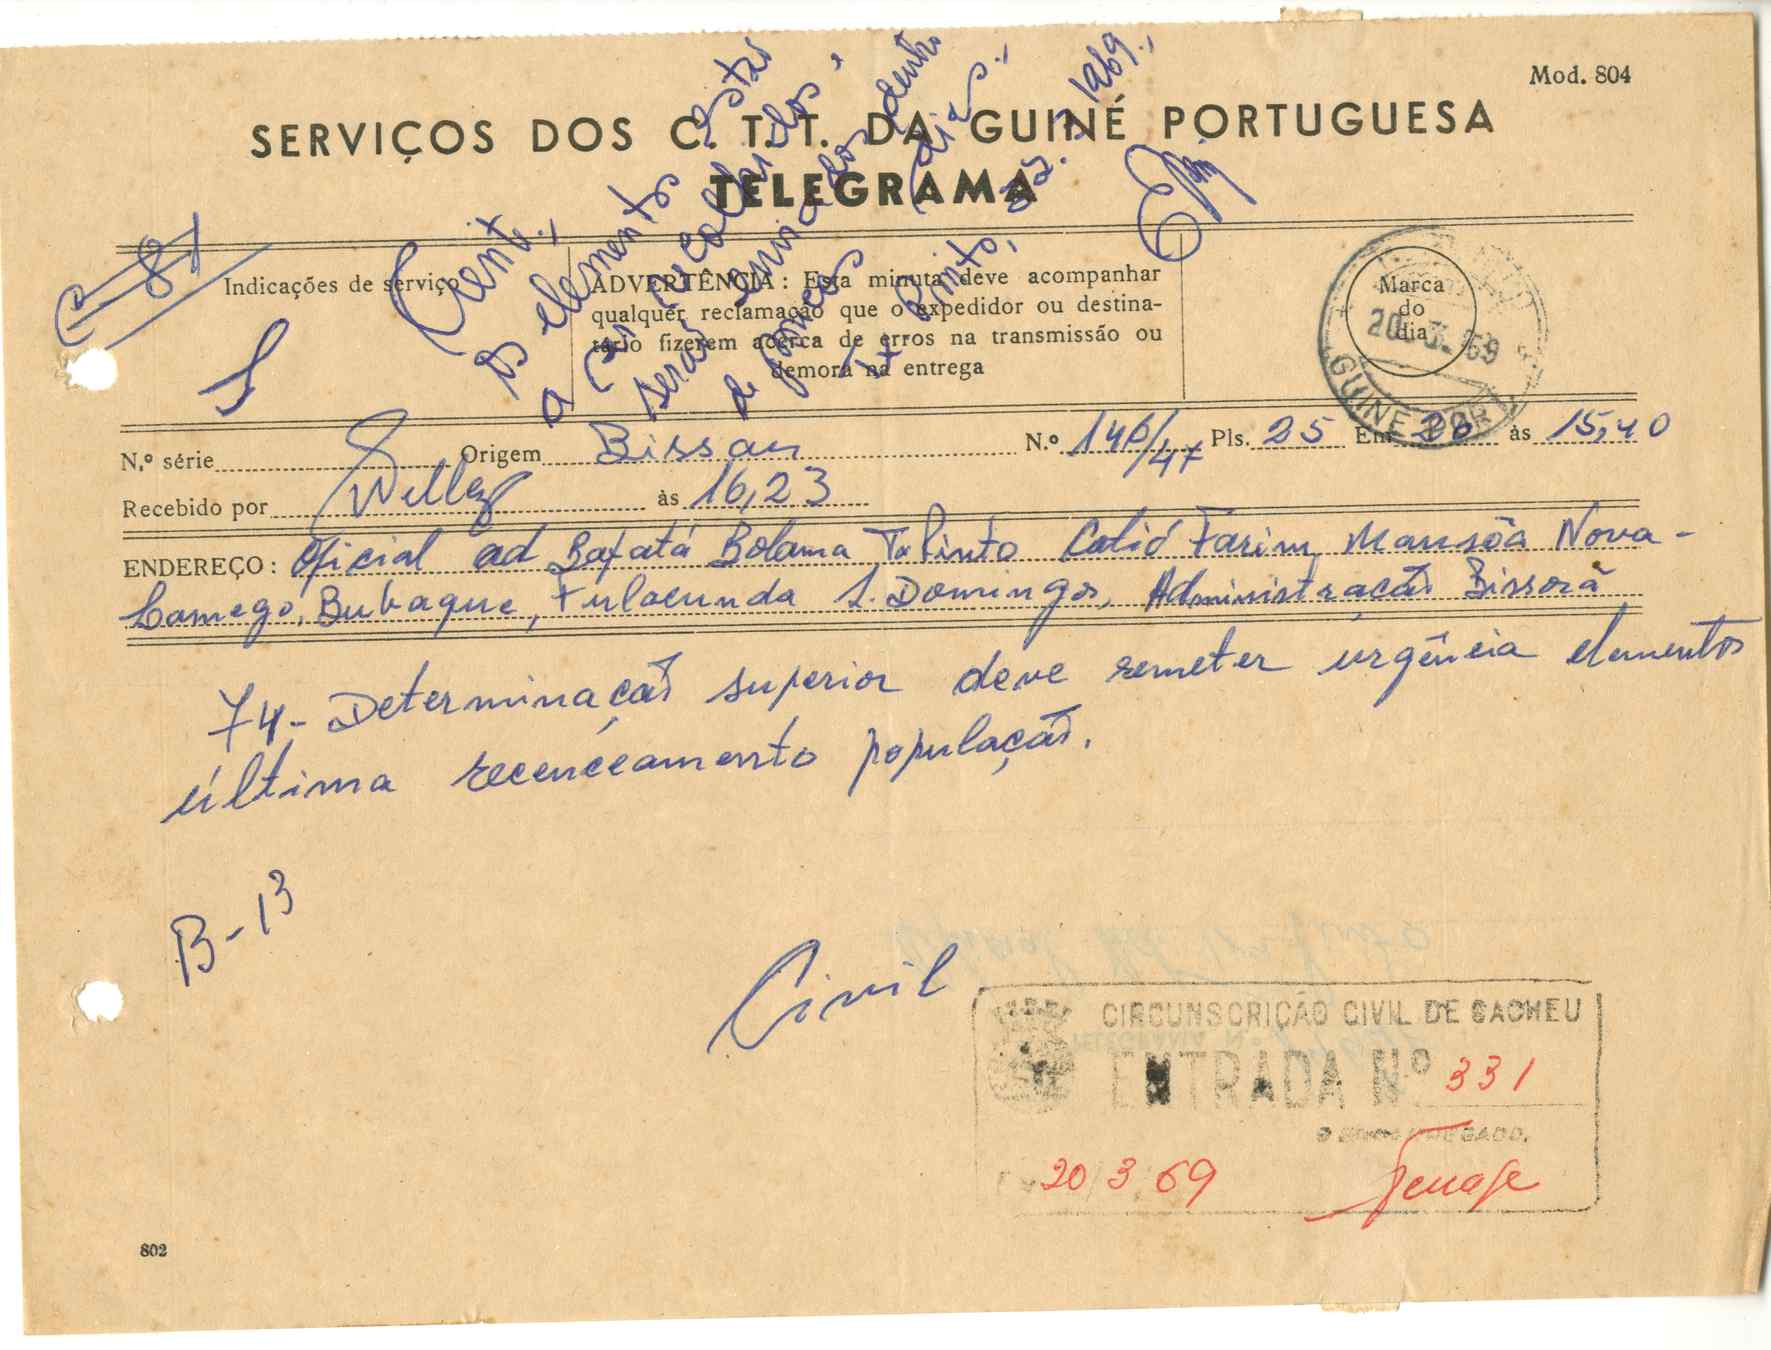 Mod. 804
SERVIÇOS DOS C. T. T. DA GUINÉ PORTUGUESA
TELEGRAMA
Cient.,
os elementos estão
a ser recolhidos,
serão enviados dentro
de poucos dias.,
1969.,
C-81
Indicações de serviço
ADVERTÊNCIA: Esta minuta deve acompanhar
qualquer reclamação que o expedidor ou destina-
tário fizerem acerca de erros na transmissão ou
demora na entrega
Marca
do
dia
20. 3. 69
GUINÉ POR
N.º série Origem Bissau N.º 146/47 Pls. 25 Em 20 às 15,40
Recebido por às 16,23
ENDEREÇO: Oficial ad Bafatá Bolama Tx Pinto Catió Farim Mansôa Nova-
Lamego, Bubaque, Fulacunda S. Domingos, Administração Bissorã
74- Determinação superior deve remeter urgência elementos
última recenceamento população.
B-13
Civil
CIRCUNSCRIÇÃO CIVIL DE CACHEU
ENTRADA Nº 331
O ENCARREGADO,
20/3/69
802